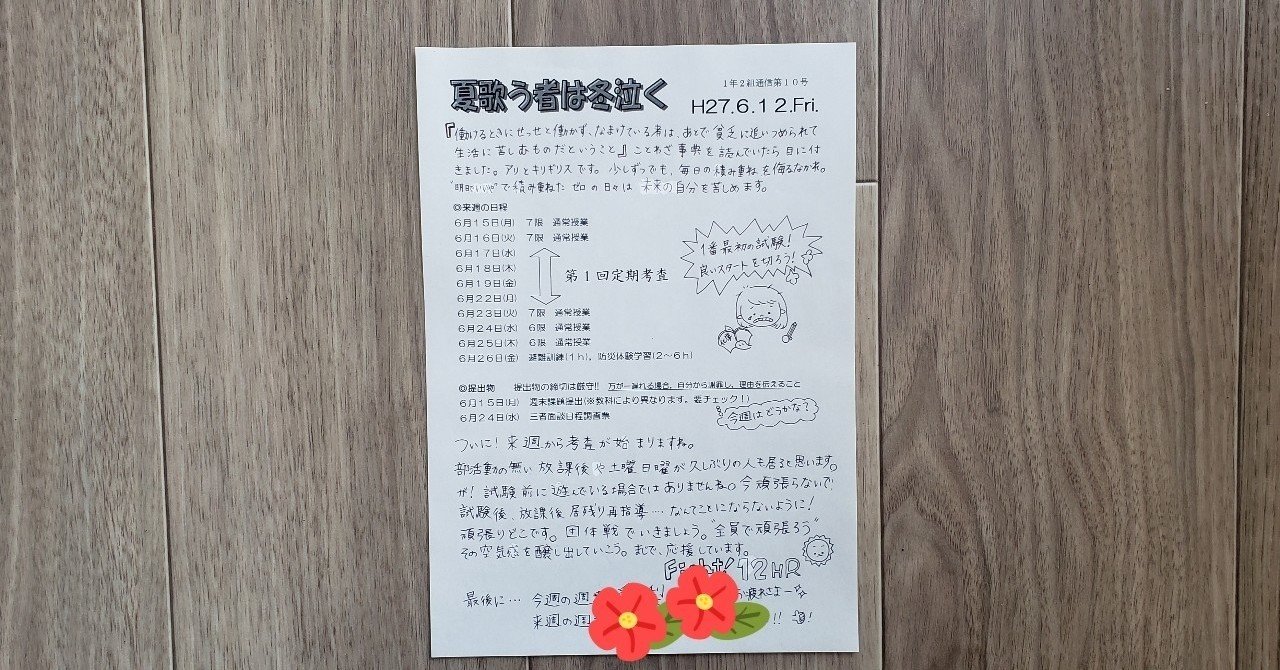 1年2組通信第10号
夏歌う者は冬泣く
H27.6.12.Fri.
『働けるときにせっせと働かず、なまけている者は、あとで貧乏に追いつめられて
生活に苦しむものだということ』ことわざ事典を読んでいたら目に付
きました。アリとキリギリスです。少しずつでも、毎日の積み重ねを侮るなかれ。
"明日でいいや"で積み重ねたゼロの日々は未来の自分を苦しめます。
◎来週の日程
6月15日(月) 7限 通常授業
6月16日(火) 7限 通常授業
6月17日(水)
6月18日(木)
第1回定期考査
6月19日(金)
6月22日(月)
6月23日(火) 7限 通常授業
6月24日(水) 6限 通常授業
6月25日(木) 6限 通常授業
6月26日(金) 避難訓練(1h), 防災体験学習(2〜6h)
1番最初の試験!
良いスタートを切ろう!
◎提出物 提出物の締切は厳守!! 万が一遅れる場合, 自分から謝罪し, 理由を伝えること
6月15日(月) 週末課題提出(※教科により異なります。要チェック!)
6月24日(水) 三者面談日程調査票
今週はどうかな?
ついに!来週から考査が始まりますね。
部活動の無い放課後や土曜日曜が久しぶりの人も居ると思います。
が!試験前に遊んでいる場合ではありませんね。今頑張らないで
試験後、放課後居残り再指導…なんてことにならないように!
頑張りどこです。団体戦でいきましょう。"全員で頑張ろう"
その空気感を醸し出していこう。まじで、応援しています。
Fight! 12HR
最後に… 今週の週 疲れさまーな
来週の週 !!